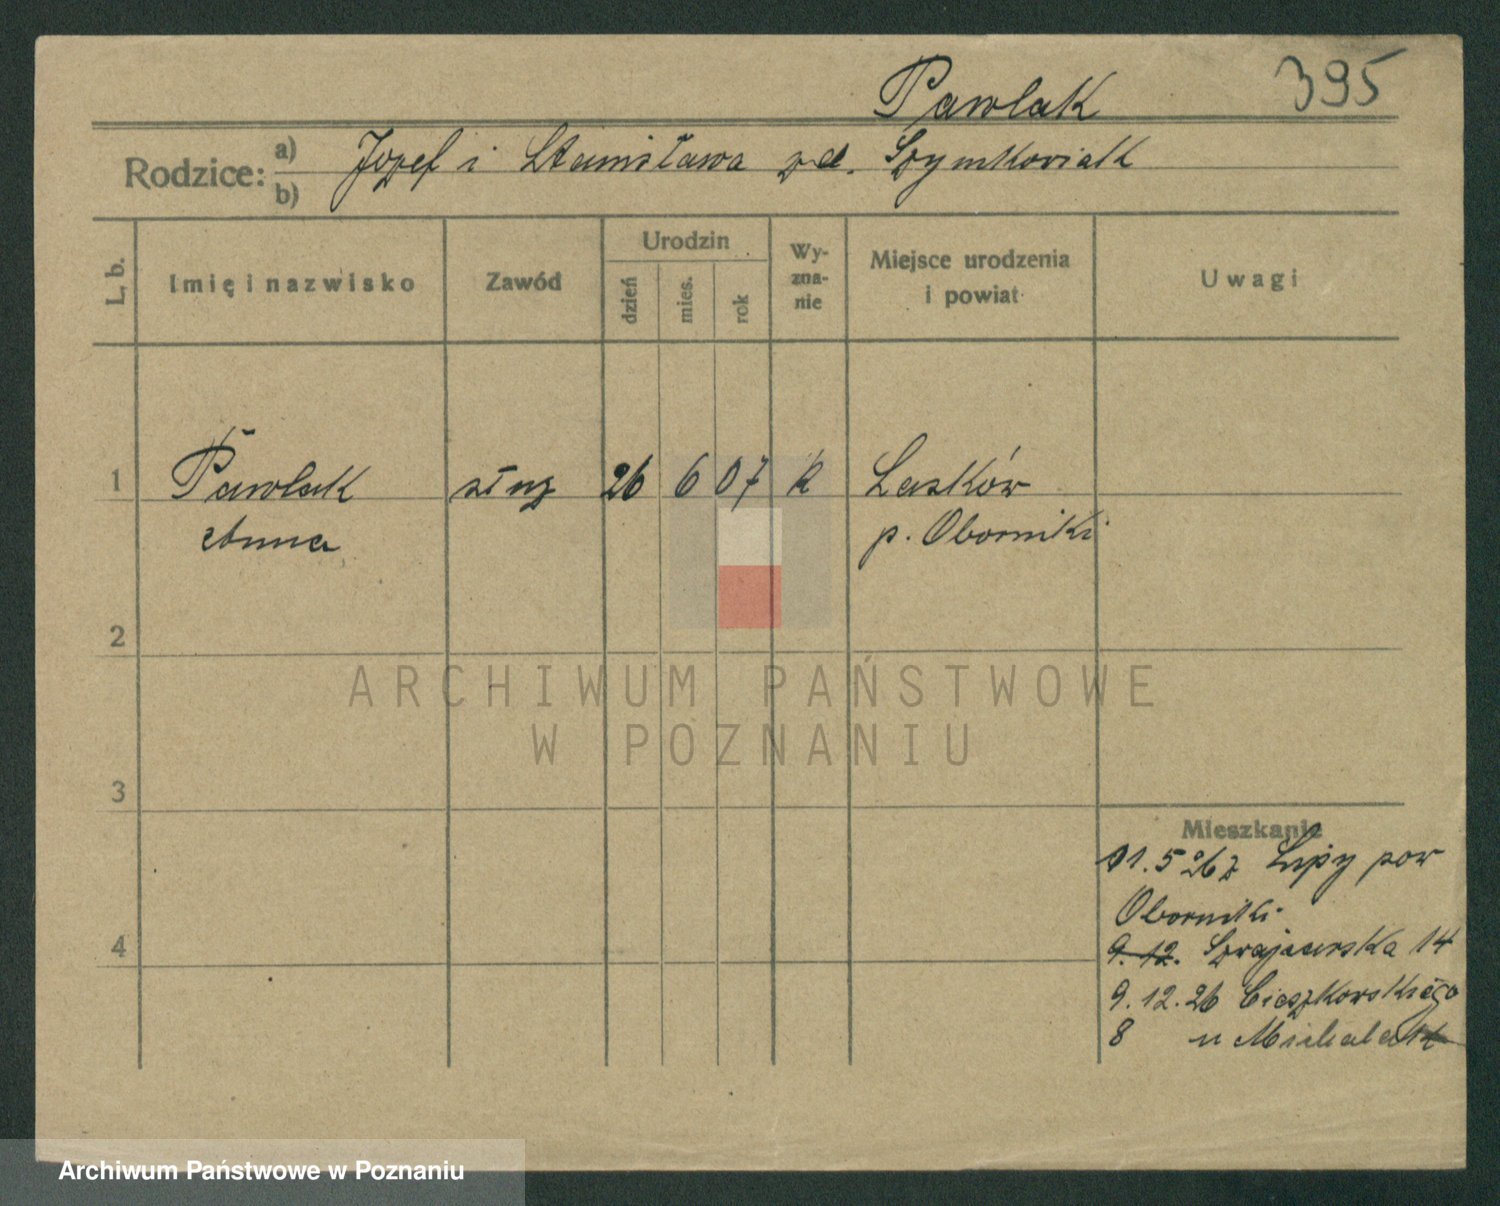 Pawlak 395
Rodzice: a) b) Józef i Stanisława zd. Szymkowiak
L. b. Imię i nazwisko Zawód Urodzin dzień mies. rok Wy-zna-nie Miejsce urodzenia i powiat Uwagi
1 Pawlak służ 26 6 07 k Lasków
Anna p. Oborniki
2
ARCHIWUM PAŃSTWOWE
W POZNANIU
3
Mieszkanie
11.5 26 z Lipy pow
Oborniki
4 9.12. 14
9.12.26 Cieszkowskiego
8 u Michalak
Archiwum Państwowe w Poznaniu